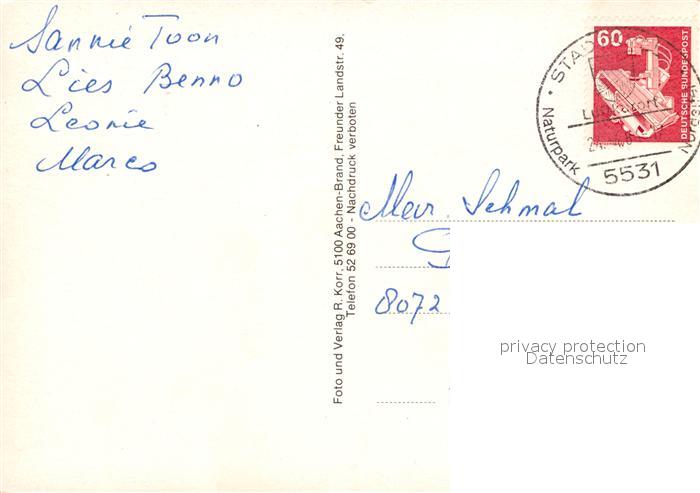 Sannie Toon
Lies Benno
Leonie
Marco
Foto und Verlag R. Korr, 5100 Aachen-Brand, Freunder Landstr. 49,
Telefon 52 69 00 - Nachdruck verboten
60
DEUTSCHE BUNDESPOST
Naturpark
5531
Mevr. Schmal
8072
privacy protection
Datenschutz